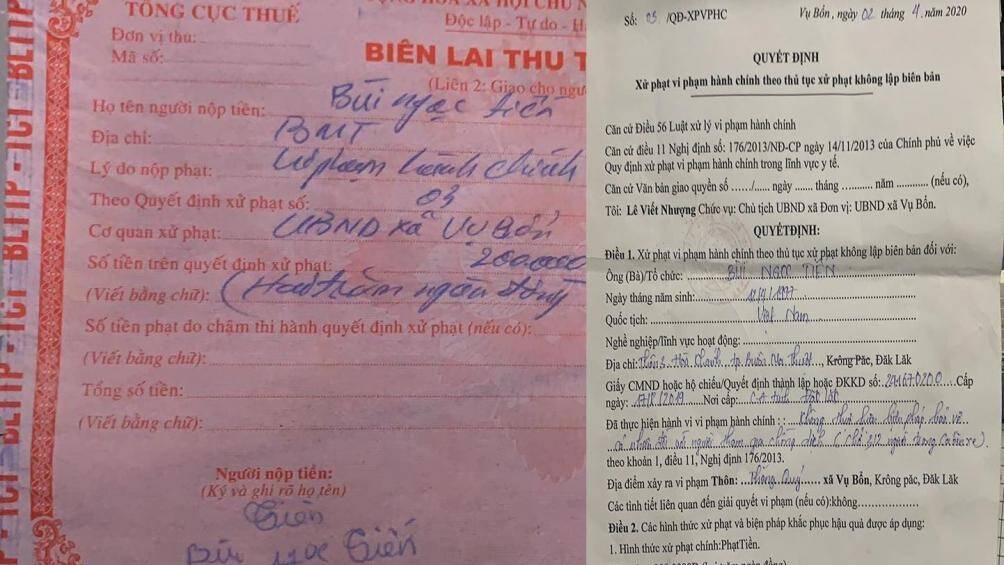 TỔNG CỤC THUẾ
Độc lập - Tự do - H
Đơn vị thu:
Mã số:
BIÊN LAI THU T
(Liên 2: Giao cho ngườ
Họ tên người nộp tiền: Bùi ngọc tiến
Địa chỉ: BMT
Lý do nộp phạt: Vi phạm hành chính
Theo Quyết định xử phạt số: 03
Cơ quan xử phạt: UBND xã Vụ Bổn
Số tiền trên quyết định xử phạt: 200.000
(Viết bằng chữ): (Hai trăm ngàn đồng)
Số tiền phạt do chậm thi hành quyết định xử phạt (nếu có):
(Viết bằng chữ):
Tổng số tiền:
(Viết bằng chữ):
Người nộp tiền:
(Ký và ghi rõ họ tên)
Tiến
Bùi ngọc Tiến
BLTIP - TCT
Số: 03 /QĐ-XPVPHC
Vụ Bổn, ngày 02 tháng 4 năm 2020
QUYẾT ĐỊNH
Xử phạt vi phạm hành chính theo thủ tục xử phạt không lập biên bản
Căn cứ Điều 56 Luật xử lý vi phạm hành chính
Căn cứ điều 11 Nghị định số: 176/2013/NĐ-CP ngày 14/11/2013 của Chính phủ về việc
Quy định xử phạt vi phạm hành chính trong lĩnh vực y tế.
Căn cứ Văn bản giao quyền số ...../..... ngày ...... tháng .......... năm .......... (nếu có),
Tôi: Lê Viết Nhượng Chức vụ: Chủ tịch UBND xã Đơn vị: UBND xã Vụ Bổn.
QUYẾTĐỊNH:
Điều 1. Xử phạt vi phạm hành chính theo thủ tục xử phạt không lập biên bản đối với:
Ông (Bà)/Tổ chức: BÙI NGỌC TIẾN
Ngày tháng năm sinh: /1997
Quốc tịch: Việt Nam
Nghề nghiệp/lĩnh vực hoạt động:
Địa chỉ: Thôn 3 Hoà Khánh tp Buôn Ma Thuột, Krông Păc, Đăk Lăk
Giấy CMND hoặc hộ chiếu/Quyết định thành lập hoặc ĐKKD số: Cấp
ngày: /2019 Nơi cấp: CA tỉnh Đắk Lắk
Đã thực hiện hành vi vi phạm hành chính : Không thực hiện biện pháp bảo vệ
cá nhân đối với người tham gia chống dịch ( Chở 3,12 người trong xe).
theo khoản 1, điều 11, Nghị định 176/2013.
Địa điểm xảy ra vi phạm Thôn: Thăng Quý xã Vụ Bổn, Krông păc, Đăk Lăk
Các tình tiết liên quan đến giải quyết vi phạm (nếu có):không
Điều 2. Các hình thức xử phạt và biện pháp khắc phục hậu quả được áp dụng:
1. Hình thức xử phạt chính:PhạtTiền.